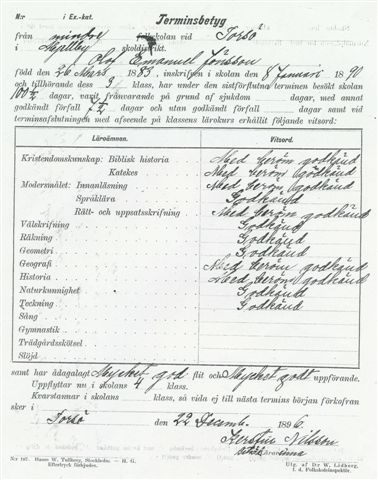 N:r i Ex.-kat. Terminsbetyg
från mindre folkskolan vid Torsö
i skoldistrikt.
Olof Emanuel Jönsson
född den 26 Mars 1883, inskrifven i skolan den 8 Januari 1890
och tillhörande dess 3 klass, har under den sistförflutna terminen besökt skolan
100 ½ dagar, varit frånvarande på grund af sjukdom dagar, med annat
godkändt förfall 7 ½ dagar och utan godkändt förfall dagar samt vid
terminsafslutningen med afseende på klassens lärokurs erhållit följande vitsord:
Läroämnen. Vitsord.
Kristendomskunskap: Biblisk historia Med beröm godkänd
Katekes Med beröm godkänd
Modersmålet: Innanläsning Med beröm godkänd
Språklära Godkänd
Rätt- och uppsatsskrifning Med beröm godkänd
Välskrifning Godkänd
Räkning Godkänd
Geometri Godkänd
Geografi Med beröm godkänd
Historia Med beröm godkänd
Naturkunnighet Godkänd
Teckning Godkänd
Sång
Gymnastik
Trädgårdsskötsel
Slöjd
samt har ådagalagt Mycket god flit och Mycket godt uppförande.
Uppflyttar nu i skolans 4 klass.
Kvarstannar i skolans klass, så vida ej till nästa termins början förkofran
sker i
Torsö den 22 Decemb. 1896.
Kerstin Nilsson
lärarinna
N:r 107. Hasse W. Tullberg, Stockholm. — H. G.
Eftertryck förbjudes.
Utg. af D:r W. Lidberg,
f. d. Folkskoleinspektör.